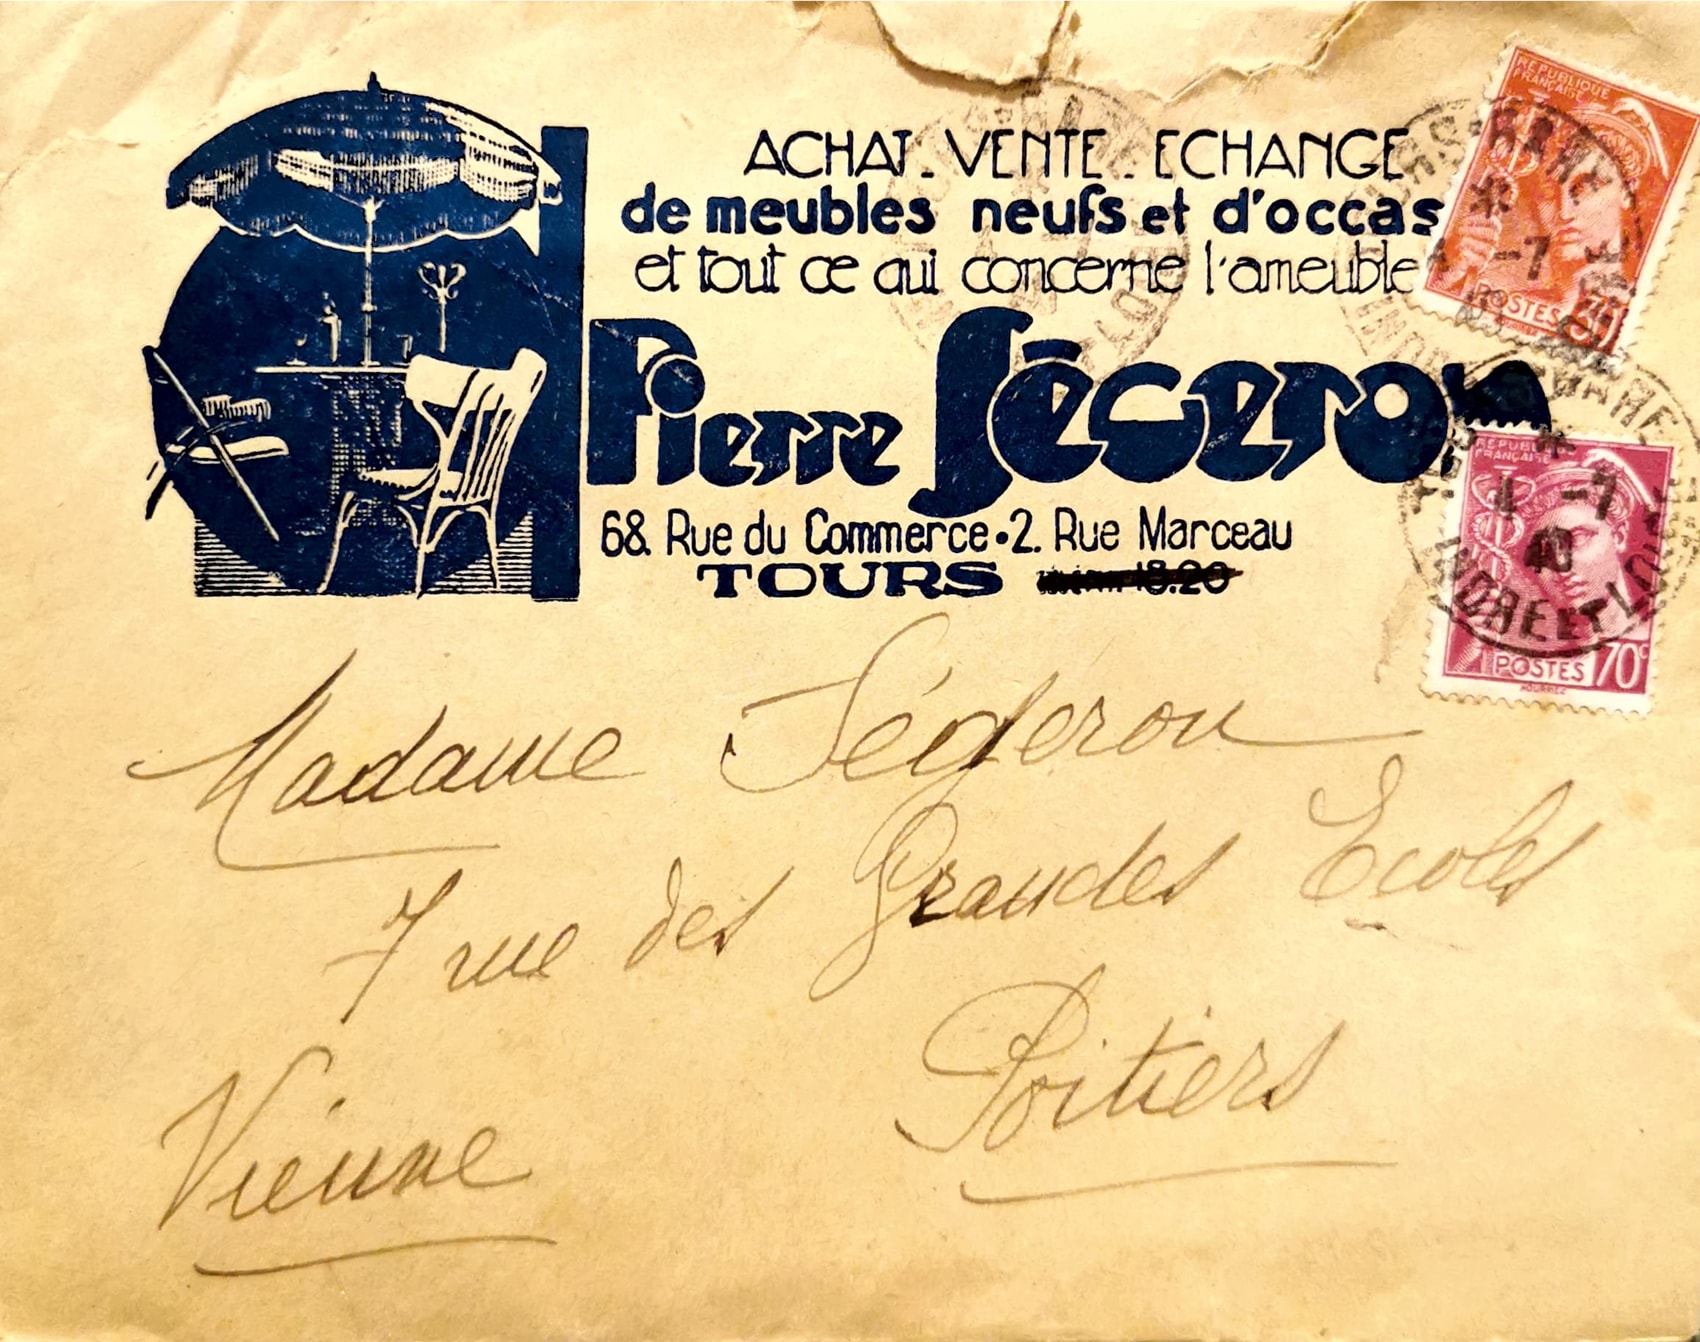 ACHAT - VENTE - ECHANGE
de meubles neufs et d'occas
et tout ce qui concerne l'ameuble
Pierre Ségeron
68. Rue du Commerce • 2. Rue Marceau
TOURS 18.20
REPUBLIQUE
FRANÇAISE
POSTES
TOURS-GARE
-7
REPUBLIQUE
FRANÇAISE
POSTES 70c
1 -7
40
INDRE ET LOIRE
Madame Ségeron
7 rue des Grandes Ecoles
Poitiers
Vienne